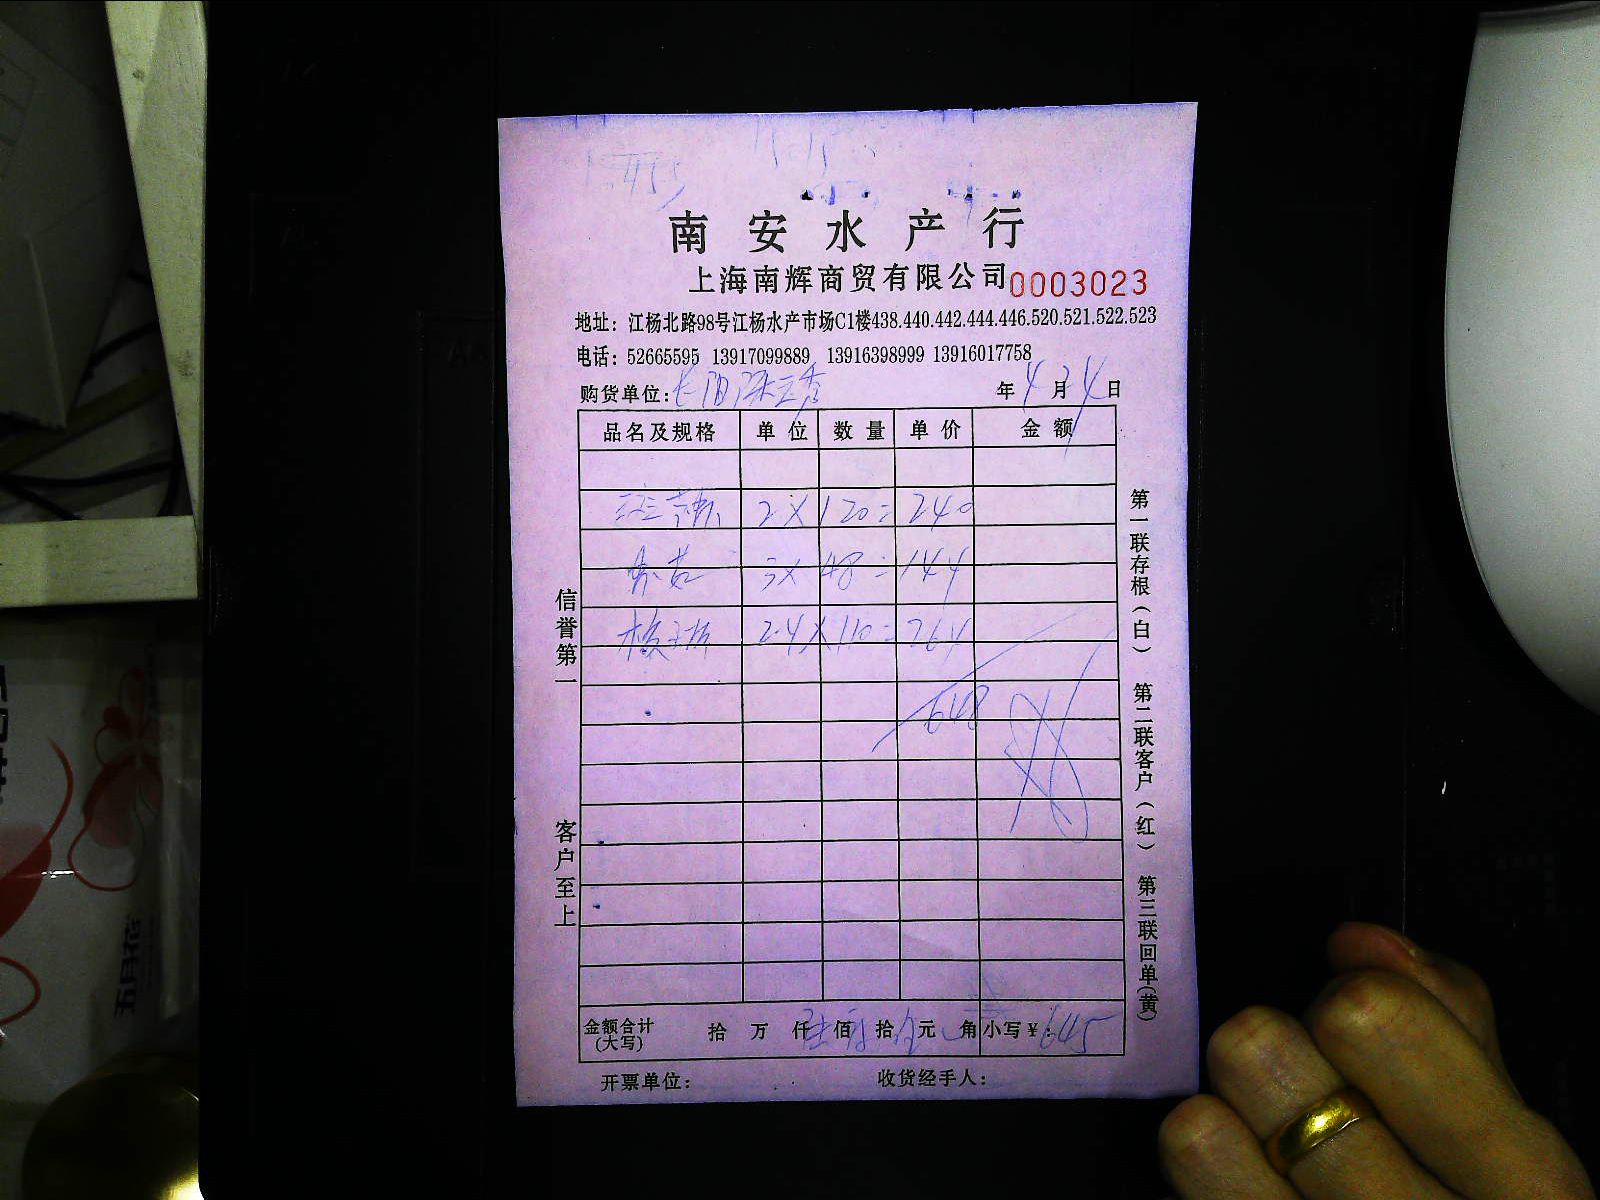 南安水产行
上海南辉商贸有限公司 0003023
地址：江杨北路98号江杨水产市场C1楼438.440.442.444.446.520.521.522.523
电话：52665595 13917099889 13916398999 13916017758
购货单位： 年4月24日
品名及规格 单位 数量 单价 金额
2×120=240
3×48=144
2.4×110=264
648
信誉第一
客户至上
第一联存根（白） 第二联客户（红） 第三联回单（黄）
金额合计（大写） 拾 万 仟 佰 拾 元 角 小写￥：645
开票单位： 收货经手人：
五月花